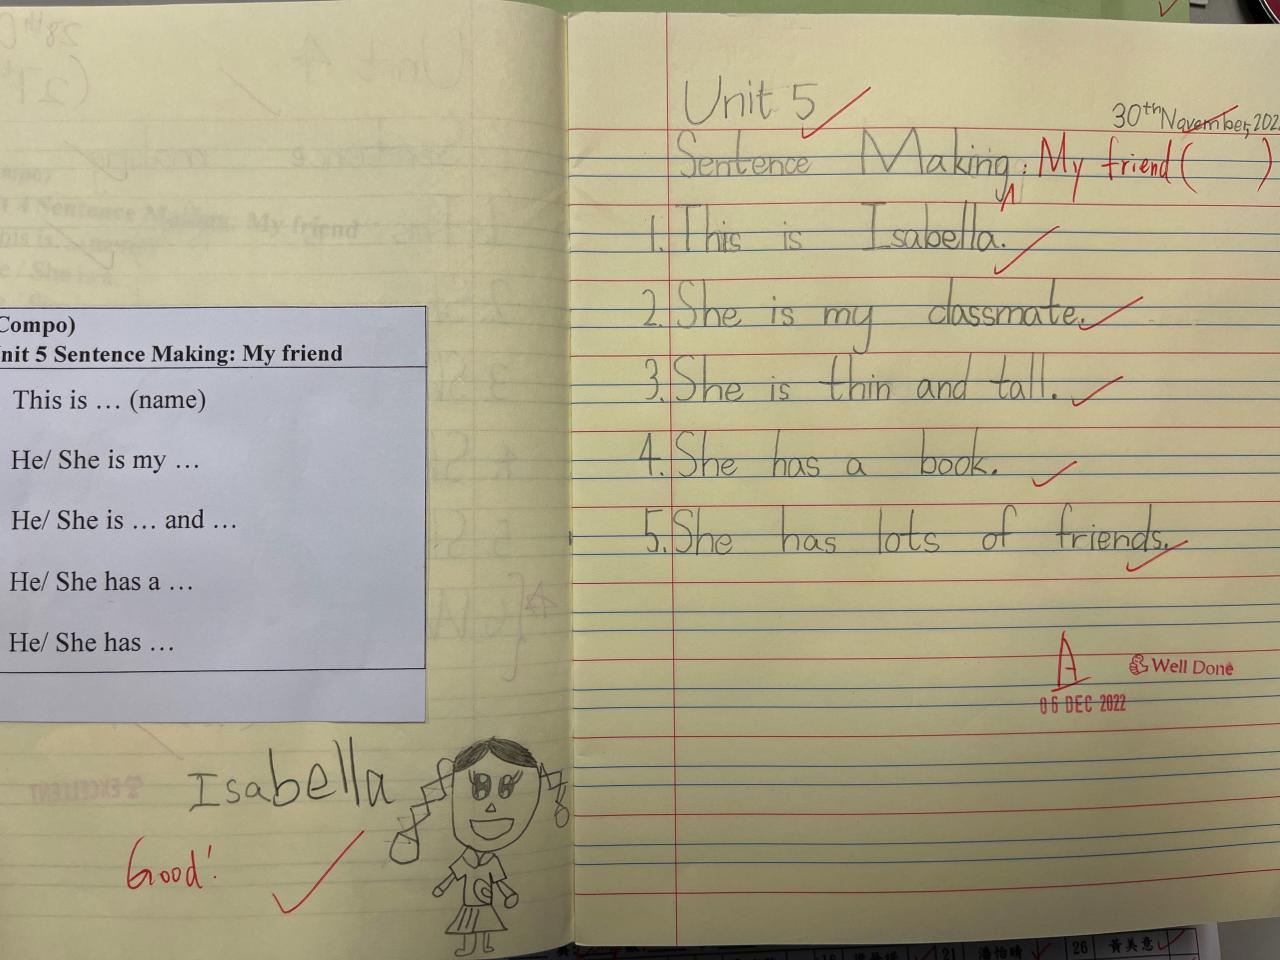 Compo)
nit 5 Sentence Making: My friend
This is … (name)
He/ She is my …
He/ She is … and …
He/ She has a …
He/ She has …
Isabella
Good!
Unit 5
30th November, 202
Sentence Making: My friend ( )
1. This is Isabella.
2. She is my classmate.
3. She is thin and tall.
4. She has a book.
5. She has lots of friends.
A
Well Done
06 DEC 2022
21
26 黃美意